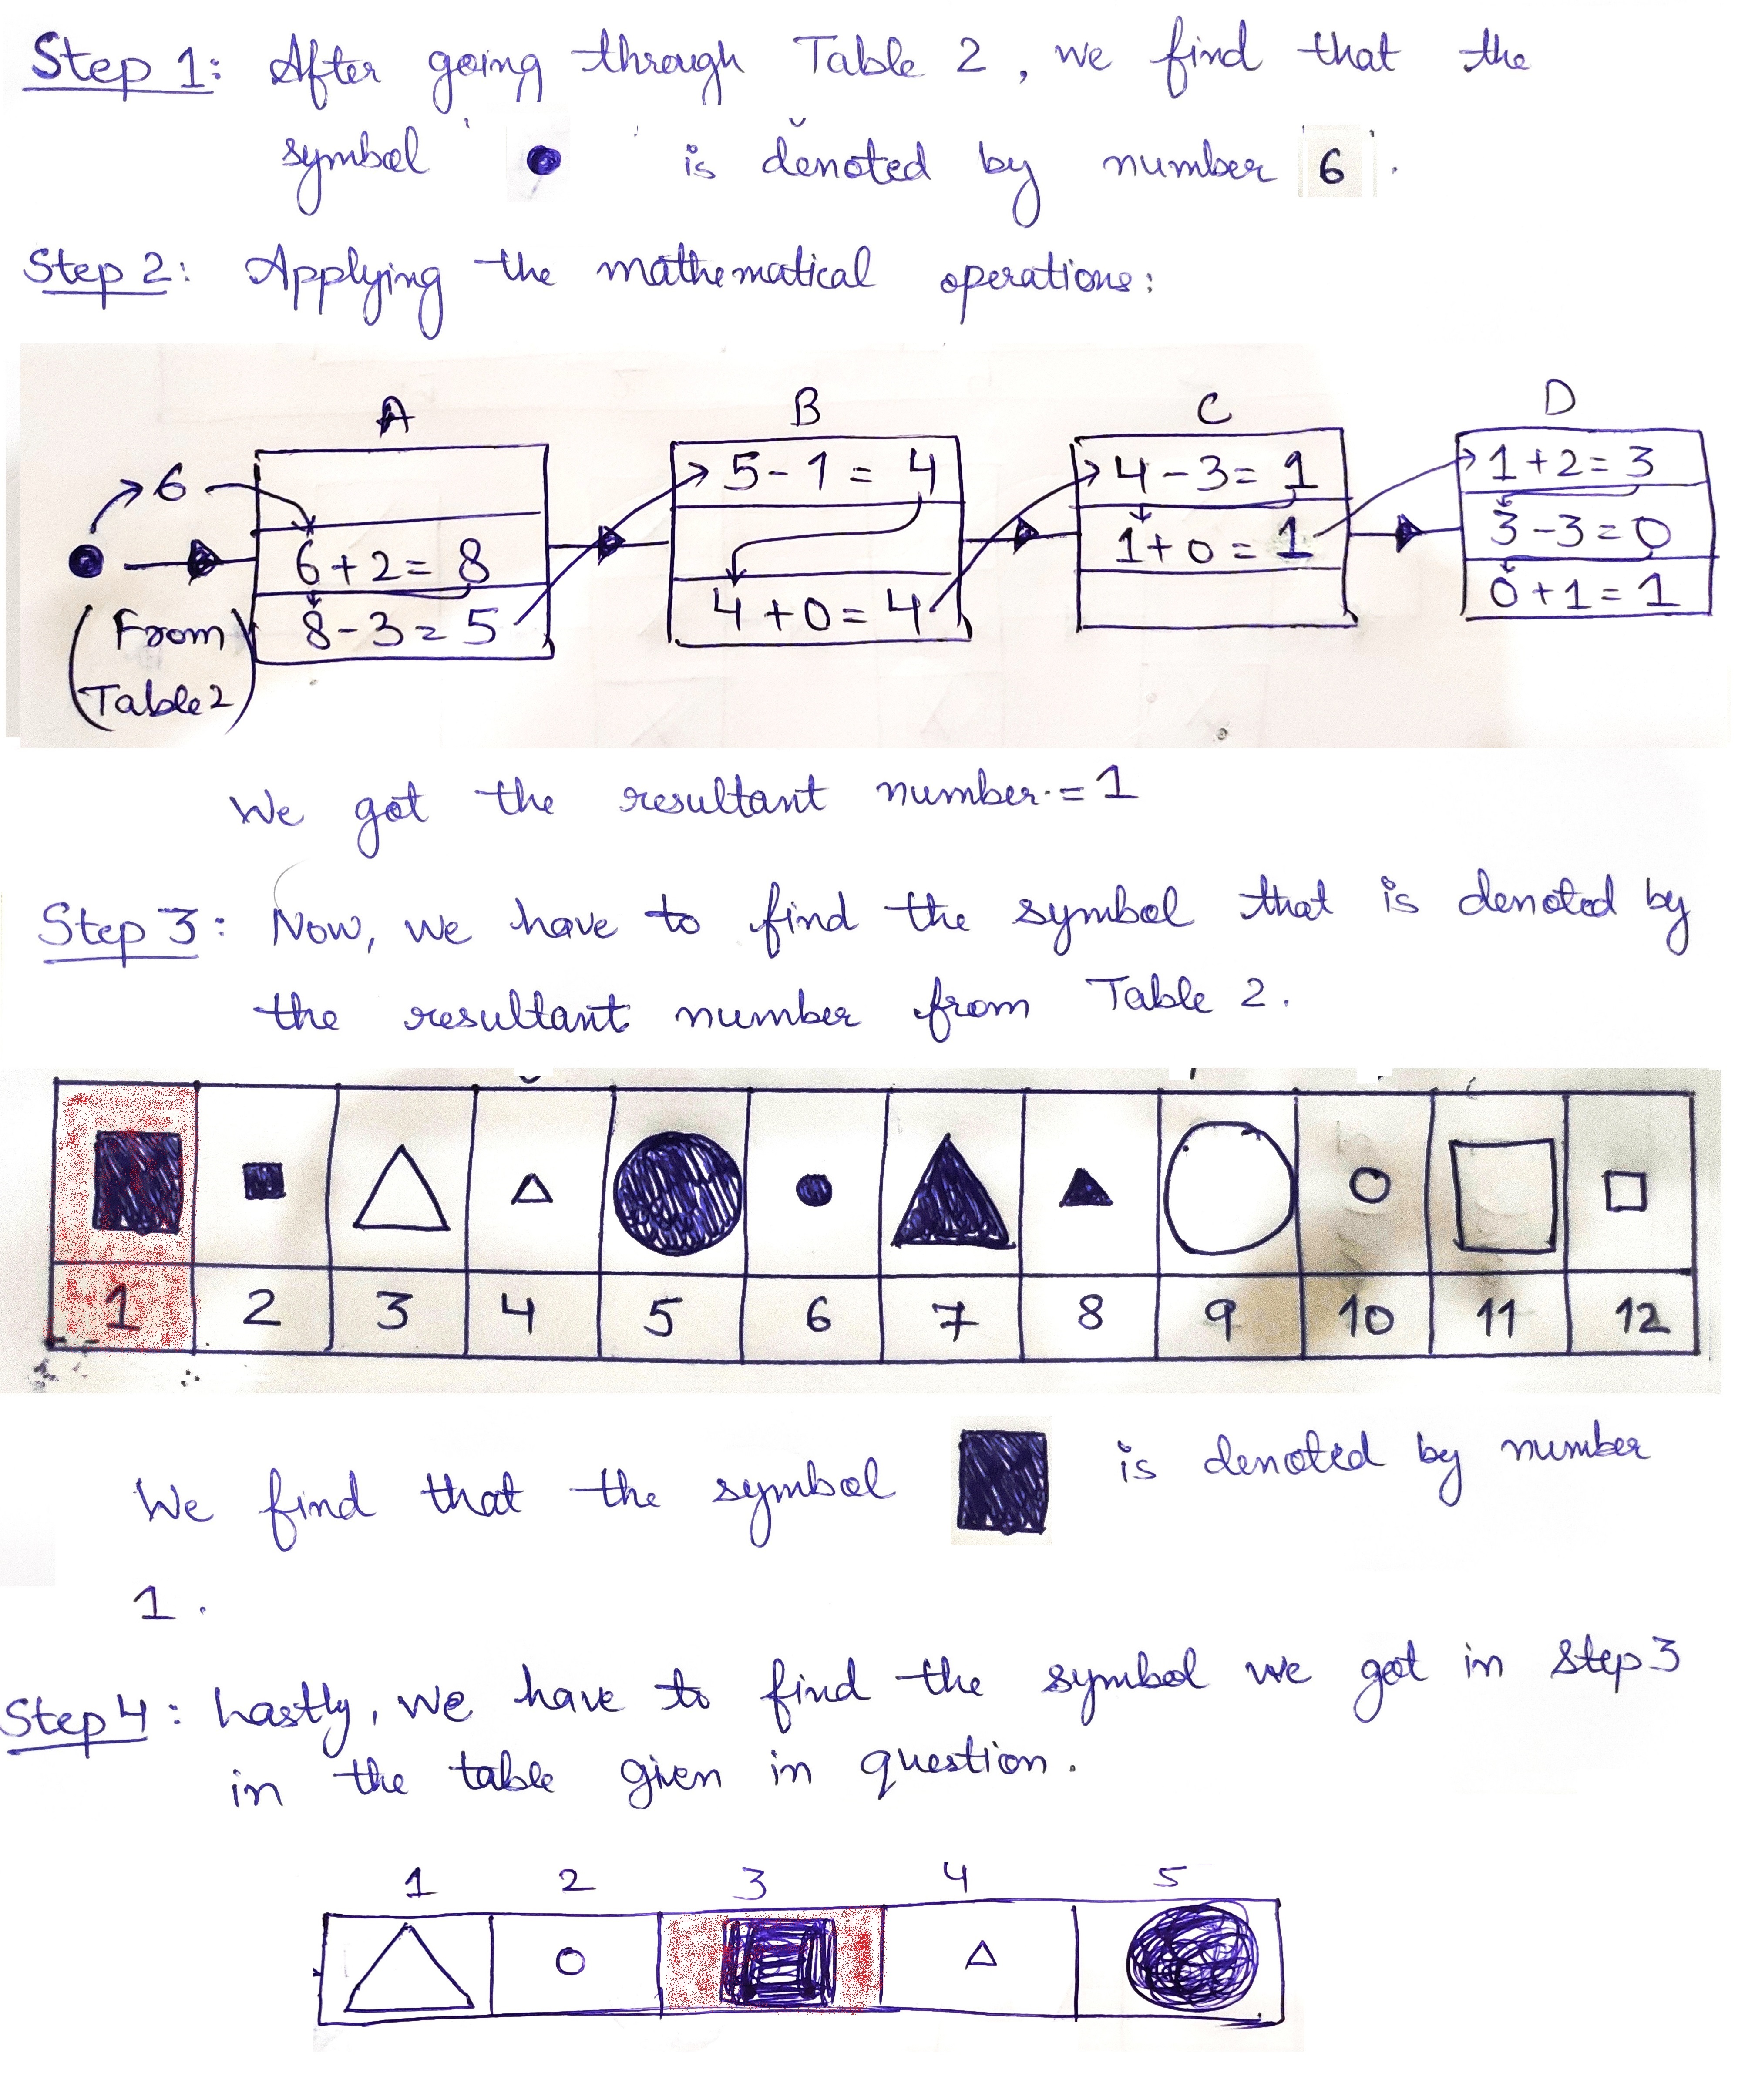 Step 1: After going through Table 2, we find that the
symbol ' ' is denoted by number 6.
Step 2: Applying the mathematical operations:
A B C D
6
5-1= 4
4-3= 1
1+2= 3
6+2= 8
1+0= 1
3-3=0
(From Table 2)
8-3=5
4+0=4
0+1=1
We got the resultant number = 1
Step 3: Now, we have to find the symbol that is denoted by
the resultant number from Table 2.
1 2 3 4 5 6 7 8 9 10 11 12
We find that the symbol is denoted by number
1.
Step 4: Lastly, we have to find the symbol we got in step 3
in the table given in question.
1 2 3 4 5